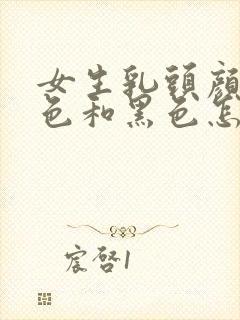 女生乳頭顏
色和黑色怎
宸啓1